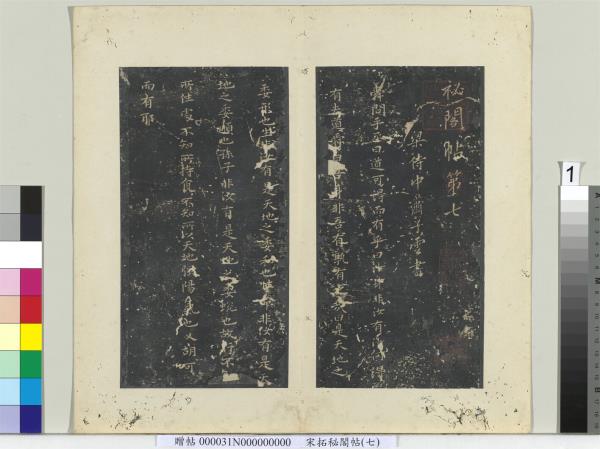 秘閣帖第七
梁侍中蕭子雲書
舜問乎丞曰道可得而有乎曰汝身非汝有何得
有夫道舜曰吾身非吾有孰有之曰是天地之
委形也生非汝有是天地之委和也性命非汝有是
地之委順也孫子非汝有是天地之委蛻也故行不
所往處不知所持食不知所以天地強陽氣也又胡可
而有耶
1
贈帖 000031N000000000 宋拓秘閣帖(七)